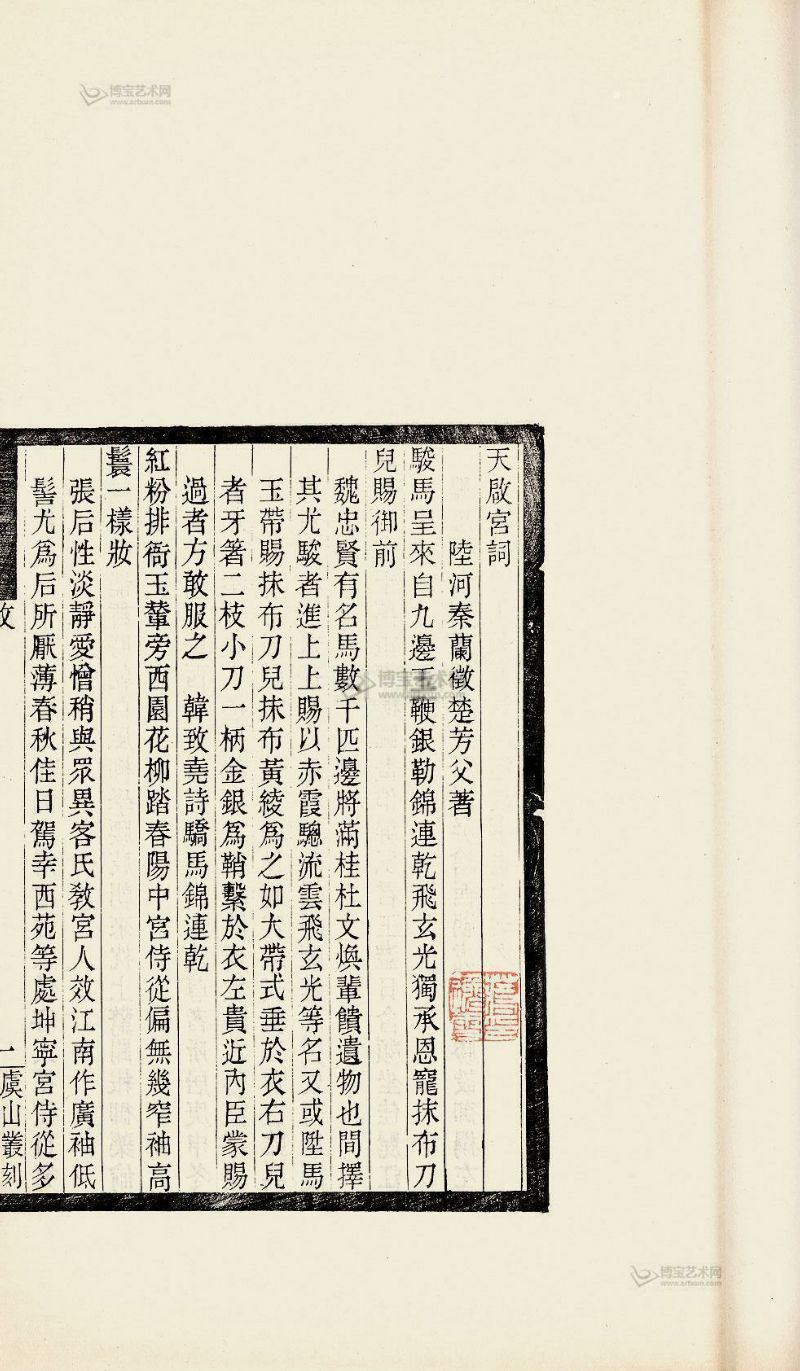 天啟宮詞
陸河秦蘭徵楚芳父著
駿馬呈來自九邊玉鞭銀勒錦連乾飛玄光獨承恩寵抹布刀
兒賜御前
魏忠賢有名馬數千匹邊將滿桂杜文煥輩饋遺物也間擇
其尤駿者進上上賜以赤霞驄流雲飛玄光等名又或陞馬
玉帶賜抹布刀兒抹布黃綾爲之如大帶式垂於衣右刀兒
者牙箸二枝小刀一柄金銀爲鞘繫於衣左貴近內臣蒙賜
過者方敢服之　韓致堯詩驕馬錦連乾
紅粉排衙玉輦旁西園花柳踏春陽中宮侍從偏無幾窄袖高
鬟一樣妝
張后性淡靜愛憎稍與眾異客氏敎宮人效江南作廣袖低
髻尤爲后所厭薄春秋佳日駕幸西苑等處坤寧宮侍從多
虞山叢刻
博宝艺术网
www.artxun.com
博宝艺术网
www.artxun.com
博宝艺术网
www.artxun.com